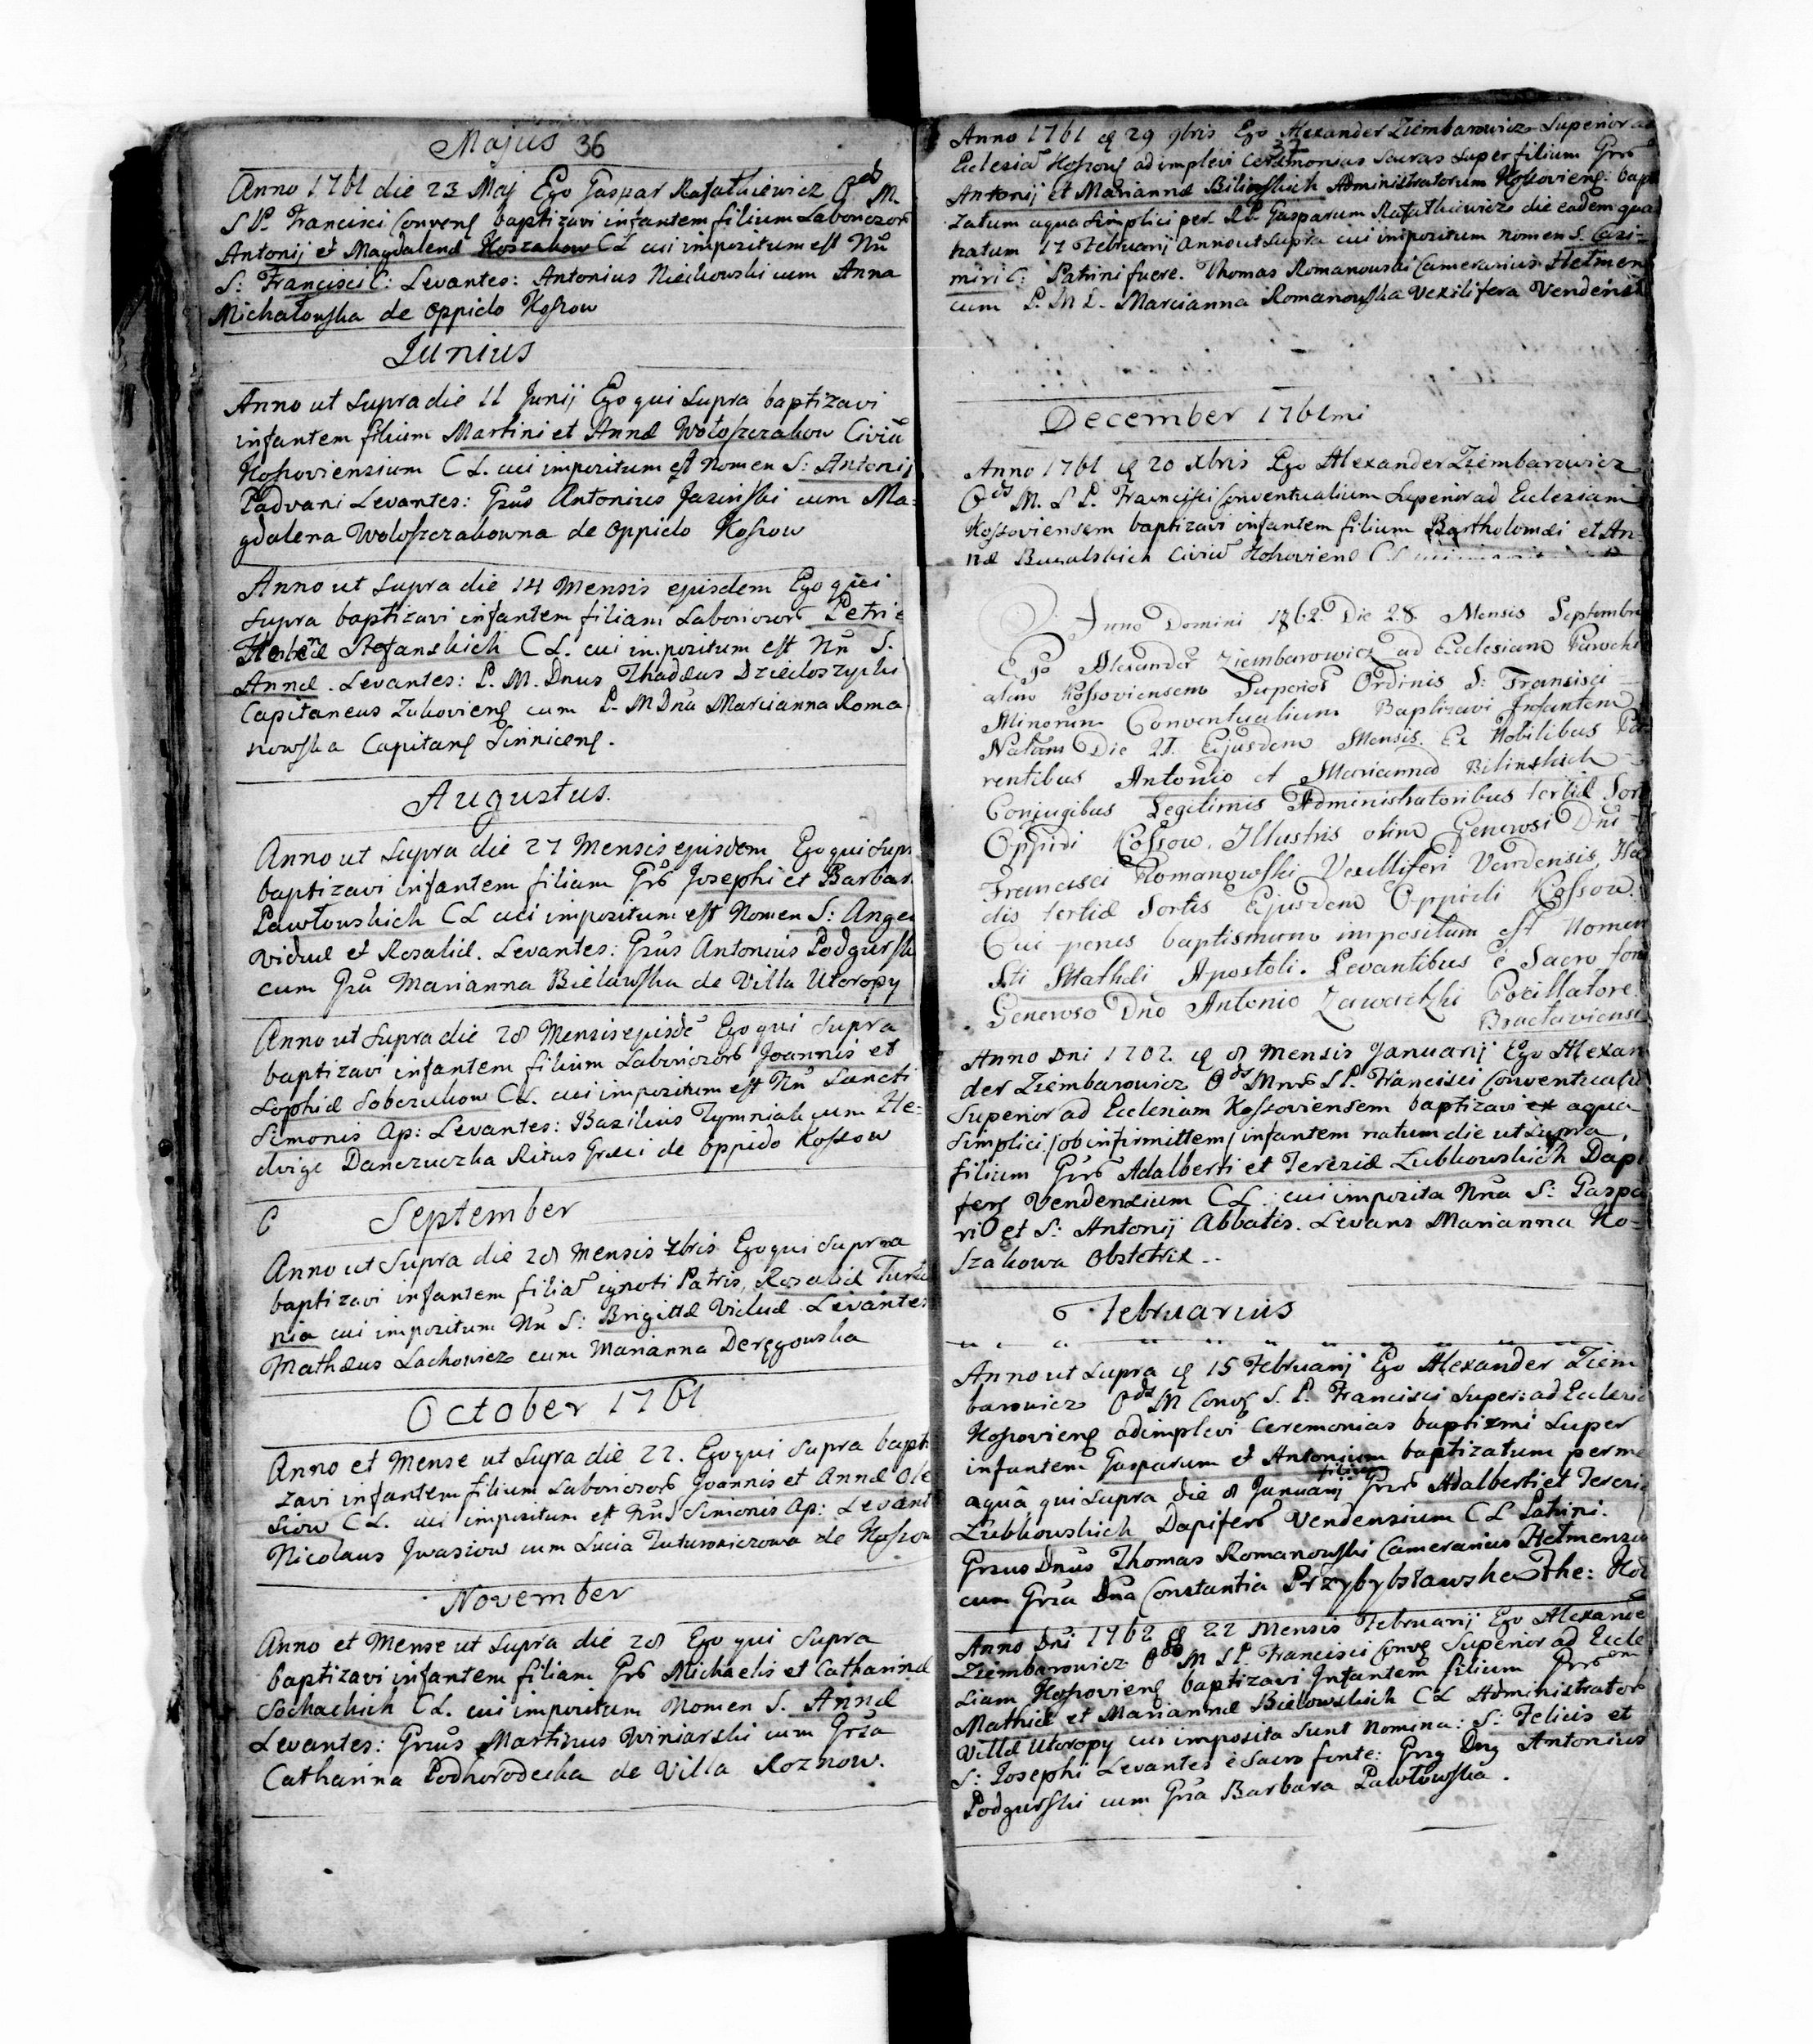 Majus 36
Anno 1761 die 23 Maj Ego Gaspar Rafałkiewicz O. M.
S P. Francisci Conveng baptizavi infantem filium Laboriozor
Antonij et Magdalenæ Koszakow CL cui impozitum est Nñ
S: Francisci C: Levantes: Antonius Nieckowski cum Anna
Michałowska de oppido Kossow
Junius
Anno ut supra die 11 Junij Ego qui supra baptizavi
infantem filium Martini et Annæ Wołoszczakow Civiũ
Kossoviensium CL. cui impozitum est Nomen S: Antonij
Padvani Levantes: Grũs Antonius Jasinski cum Ma=
gdalena Woloszczakowna de oppido Kossow
Anno ut supra die 14 Mensis ejusdem Ego qui
supra baptizavi infantem filiam Laboriozorũ Petri
Stefanskich CL. cui impozitum est Nñ S.
Annæ. Levantes: P. M. Dnus Thadæus Dzieduszycki
Capitaneus Zukovieng cum P. M Dnã Marianna Roma
nowska Capitang Sinniceng.
Augustus.
Anno ut supra die 27 Mensis ejusdem Ego qui supr
baptizavi infantem filiam Grõ Josephi et Barbar
Pawłowskich CL cui impozitum est Nomen S: Ange
viduæ et Rosaliæ. Levantes: Grũs Antonius Podgurski
cum Grã Marianna Bielawska de Villa Utoropy
Anno ut supra die 28 Mensis ejusdẽ Ego qui supra
baptizavi infantem filium Laboriozorũ Joannis et
Sophiæ Soboczukow CL. cui impozitum est Nñ Sancti
Simonis Ap: Levantes: Bazilius Tymniak cum He=
dvige Danczuczka Ritus Græci de oppido Kossow
September
Anno ut supra die 28 Mensis 7bris Ego qui supra
baptizavi infantem filiã ignoti Patris, Rozaliæ
cui impozitum Nñ S: Brigittæ Viduæ. Levantes
Mathæus Lachowicz cum Marianna Deręgowska
October 1761
Anno et Mense ut supra die 22. Ego qui supra bapti
zavi infantem filium Laboriozorũ Joannis et Annæ Ole
siow CL. cui impozitum est Nñ Simonis Ap: Levant
Nicolaus Iwasiow cum Lucia Tutunniczowa de Kossow
November
Anno et Mense ut supra die 28 Ego qui supra
baptizavi infantem filiam Grõ Michaelis et Catharinæ
Sochackich CL. cui impozitum Nomen S. Annæ
Levantes: Grũs Martinus Winiarski cum Grã
Catharina Podhorodecka de Villa Roznow.
Anno 1761 29 9bris Ego Alexander Ziembarowicz Superior ad
37
Eclesiã Kossovs adimplevi Ceremonias Sacras super filium Grõ
Antonij et Mariannæ Bilinskich Administratorum Kossovieng: bapt
zatum aqua simplici per Gasparum Rafałkiewicz die eadem qua
natum 17 Februarij Anno ut supra cui impozitum nomen S. Casi=
miri C: Patrini fuere. Thomas Romanowski Camerarius Helmen
cum P. M D. Marianna Romanowska Vexilifera Vendens
December 1761mi
Anno 1761 20 Xbris Ego Alexander Ziembarowicz
O M. S P. Francisci Conventualium Superior ad Ecclesiam
Kossoviensem baptizavi infantem filium Bartholomæi et An=
næ Civiũ Kossoviens CL
Anno Domini 1762. Die 28. Mensis Septembri
Ego Alexander Ziembarowicz ad Ecclesiam Parochi
alem Kossoviensem Superior Ordinis S: Francisci
Minorum Conventualium Baptizavi Infantem
Natum Die 21. Ejusdem Mensis. Ex Nobilibus Pa-
rentibus Antonio et Marianna Bilinskich
Conjugibus Legitimis Administratoribus tertiæ Sort
Oppidi Kossow, Illustris olim Generosi Dni
Francisci Romanowski Vexilliferi Vendensis, Hæ
dis tertiæ Sortis Ejusdem Oppidi Kossow.
Cui penes baptismum impositum est Nomen
Sti Mathæi Apostoli. Levantibus è Sacro fon
Generoso Dno Antonio Zawadzki Pocillatore
Braclaviensi
Anno Dni 1762. 8 Mensis Januarij Ego Alexan
der Ziembarowicz O Mnõ S P. Francisci Conventualiũ
Superior ad Ecclesiam Kossoviensem baptizavi ex aqua
simplici /ob infirmittem/ infantem natum die ut supra,
filium Grõ Adalberti et Tereziæ Lubkowskich Dapi
ferg Vendensium CL. cui impozita Nña S: Gaspa
ri et S: Antonij Abbatis. Levans Marianna Ko=
szakowa Obstetrix..
Februarius
Anno ut supra 15 Februarij Ego Alexander Ziem
barowicz O M Conv S. P. Francisci Super: ad Ecclesi
Kossovieng adimplevi Ceremonias baptizmi super
infantem Gasparum et Antonium baptizatum per me
filium
aquâ qui supra die 8 Januarij Grõ Adalberti et Terezi
Lubkowskich Dapiferõ Vendensium CL Patrini.
Grsus Dnus Thomas Romanowski Camerarius Helmensis
cum Grsa Dna Constantia Przybysławska The:
Anno Dni 1762 22 Mensis Februarij Ego Alexande
Ziembarowicz O M S P. Francisci Conv Superior ad Eccle
siam Kossovieng baptizavi Infantem filium Grõ
Mathiæ et Mariannæ Bielowskich CL Administratorõ
Villæ Utoropy cui imposita sunt Nomina: S: Felicis et
S: Josephi Levantes è Sacro fonte: Grsg Dng Antonius
Podgurski cum Grsa Barbara Pawłowska.